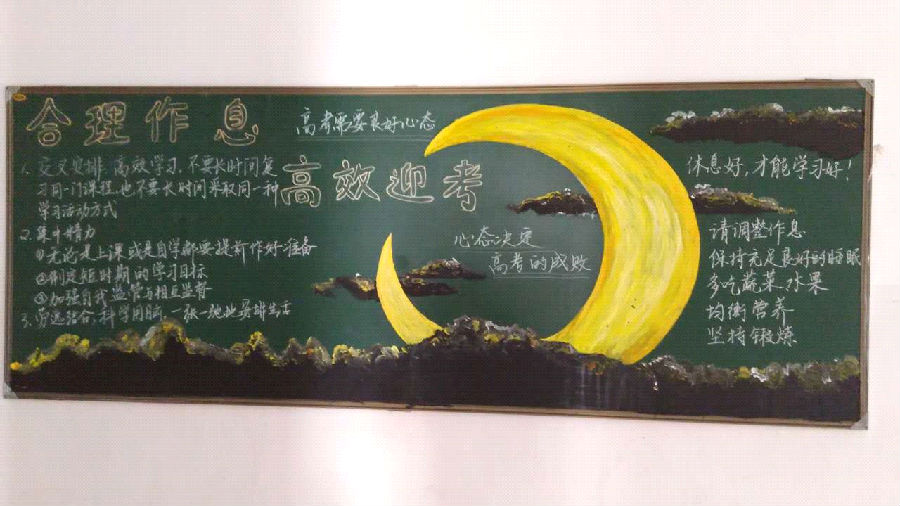 合理作息
高考需要良好心态
高效迎考
1. 交叉安排 高效学习,不要长时间复
习同一门课程,也不要长时间采取同一种
学习活动方式
2. 集中精力
①无论是上课或是自学都要提前作好准备
②制定短时期的学习目标
③加强自我监管与相互监督
3. 劳逸结合,科学用脑,一张一弛地安排生活
心态决定
高考的成败
休息好,才能学习好!
请调整作息
保持充足良好的睡眠
多吃蔬菜、水果
均衡营养
坚持锻炼